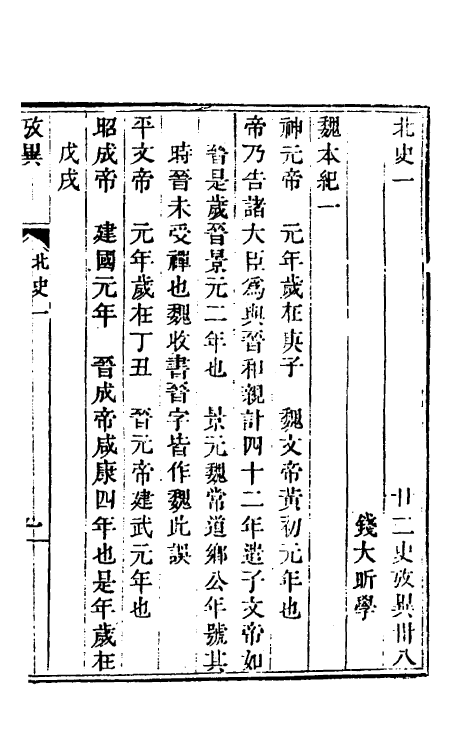 北史一　廿二史攷異卅八
錢大昕學
魏本紀一
神元帝　元年歲在庚子　魏文帝黃初元年也
帝乃告諸大臣爲與晉和親計四十二年遣子文帝如
晉是歲晉景元二年也　景元魏常道鄉公年號其
時晉未受禪也魏收書晉字皆作魏此誤
平文帝　元年歲在丁丑　晉元帝建武元年也
昭成帝　建國元年　晉成帝咸康四年也是年歲在
戊戌
攷異　北史一　一